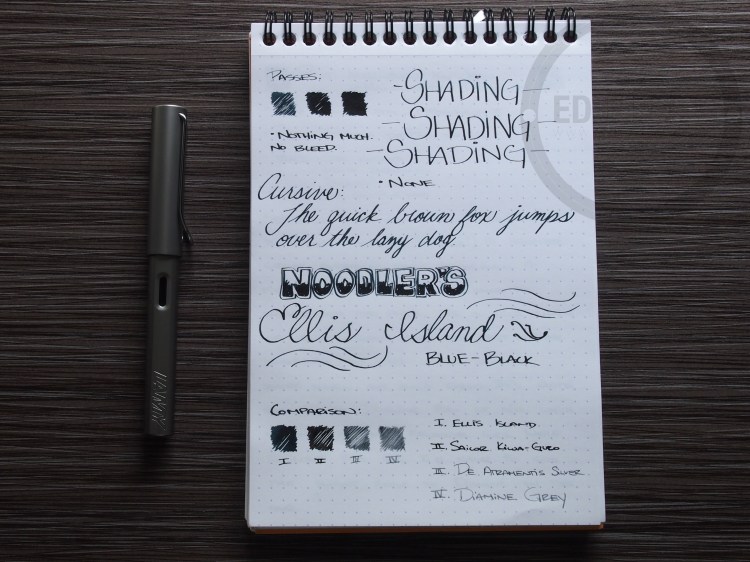 Passes:
• Nothing much.
No bleed.
-Shading-
-Shading-
-Shading-
• None
Cursive:
The quick brown fox jumps
over the lazy dog.
NOODLER'S
Ellis Island
Blue-Black
Comparison:
I II III IV
I. Ellis Island
II. Sailor Kiwa-Guro
III. De Atramentis Silver
IV. Diamine Grey
ED
LAMY